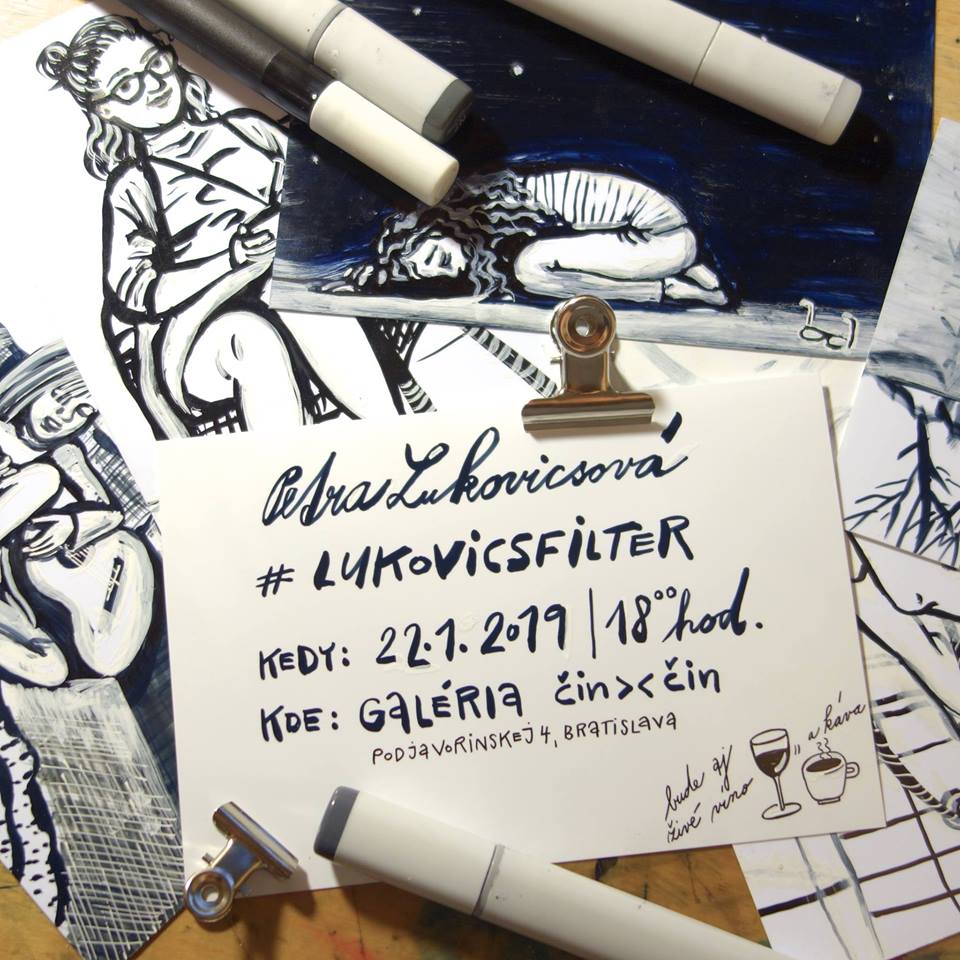 Petra Lukovicsová
# LUKOVICSFILTER
KEDY: 22.1.2019 | 18⁰⁰ hod.
KDE: GALÉRIA čin>< čin
PODJAVORINSKEJ 4, BRATISLAVA
bude aj
živé víno
" a káva